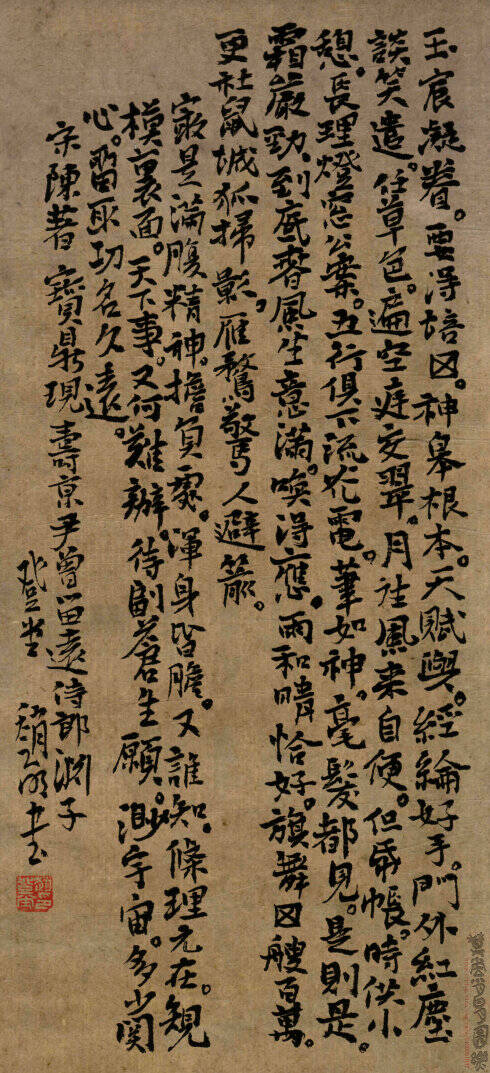 玉宸凝眷。要得培田。神皋根本。天賦與。經綸好手。門外紅塵
談笑遣。任草色。遍空庭交翠。月往風來自便。但吊帳。時供小
憩。長理燈窓公案。五行俱下流光電。筆如神。毫髮都見。是則是。
霜嚴勁。到底春風生意滿。喚得應。雨和晴恰好。旗舞田艘百萬。
更社鼠城狐掃影。雁鶩驚弓人避箭。
最是滿腹精神。擔負處。渾身皆膽。又誰知。條理元在。規
模裏面。天下事。又何難辦。待副蒼生願。渺宇宙。多少関
心。留取功名久遠。
宋陳著 寶鼎現 壽京尹曾留遠侍郎淵子
登堂 書